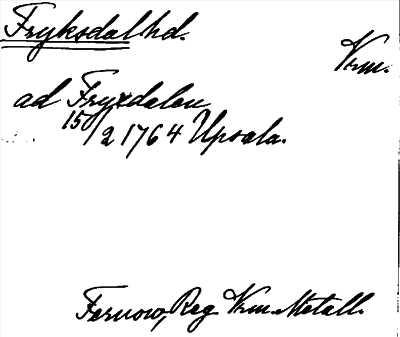 Fryksdal hd.
Vrm.
ad Fryxdalen
15/2 1764 Upsala.
Fernow, Reg Vrm. Metall.